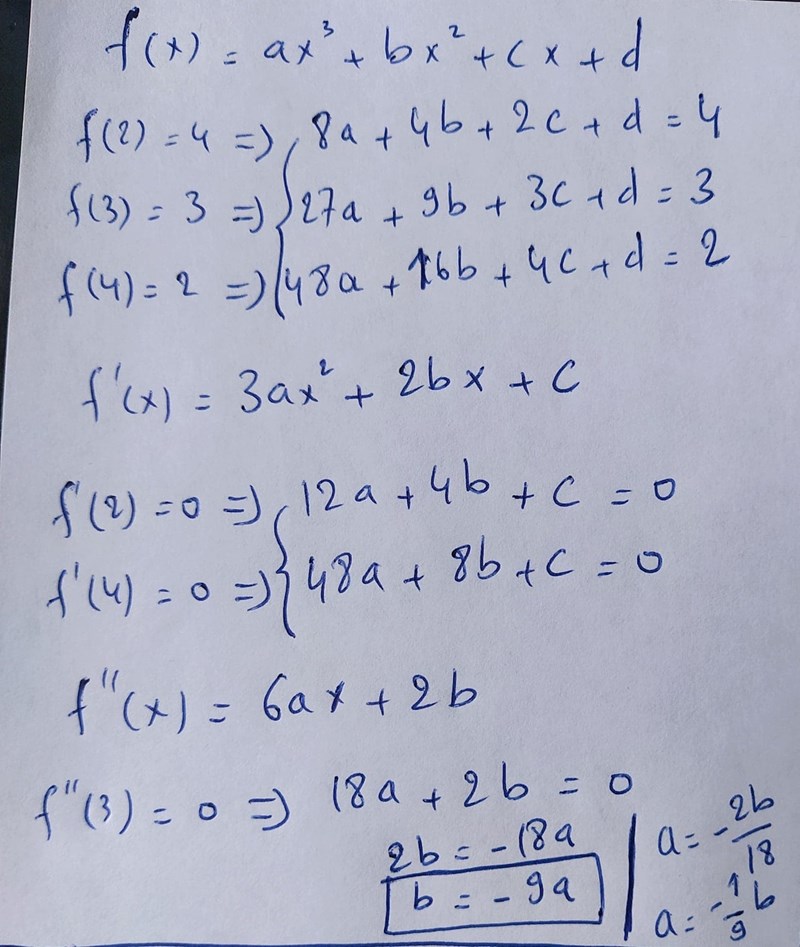 f(x) = ax³ + bx² + cx + d
f(2) = 4 => 8a + 4b + 2c + d = 4
f(3) = 3 => 27a + 9b + 3c + d = 3
f(4) = 2 => 48a + 16b + 4c + d = 2
f'(x) = 3ax² + 2bx + c
f'(2) = 0 => 12a + 4b + c = 0
f'(4) = 0 => 48a + 8b + c = 0
f''(x) = 6ax + 2b
f''(3) = 0 => 18a + 2b = 0
2b = -18a
b = -9a
a = -2b/18
a = -1/9 b